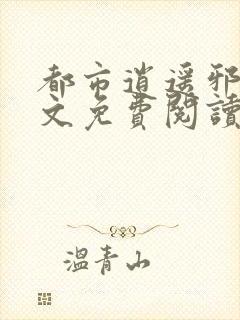 都市逍遥邪
文免費閱讀
溫青山